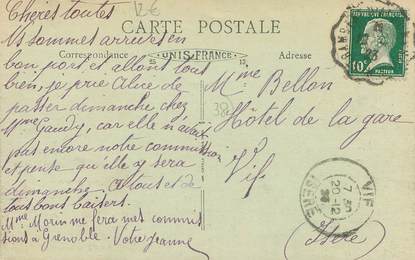 Chères toutes
12€
CARTE POSTALE
Nssommes arrivées en
Correspondance
UNIS-FRANCE
Adresse
bon port et allons tous
bien, je prie Alice de
passer dimanche chez
Mme Gaudy, car elle n'avait
pas encore notre commission
et pense qu'elle y sera
dimanche. A tous et de
tous bons baisers.
Mme Morin me fera mes commis
sions à Grenoble. Votre Jeanne
38
Mme Bellon
Hôtel de la gare
Vif
Isère
REPUBLIQUE FRANÇAISE
10c
PASTEUR
VIF
7 30
20-12
ISERE